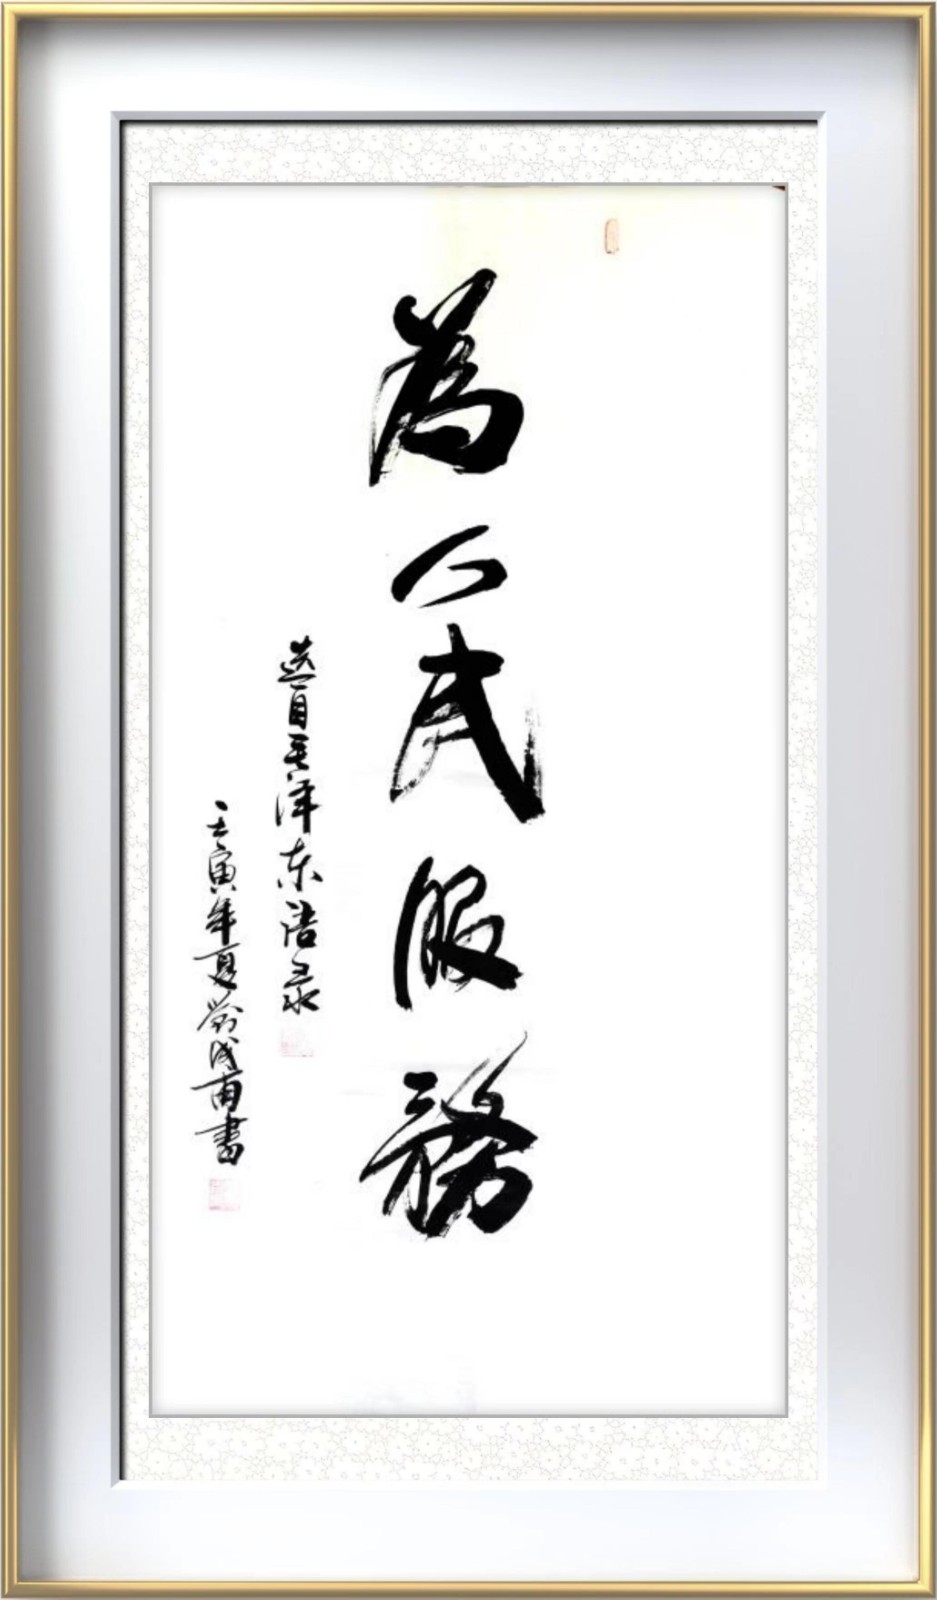 為人民服務
选自毛泽东语录
壬寅年夏劉成甫書